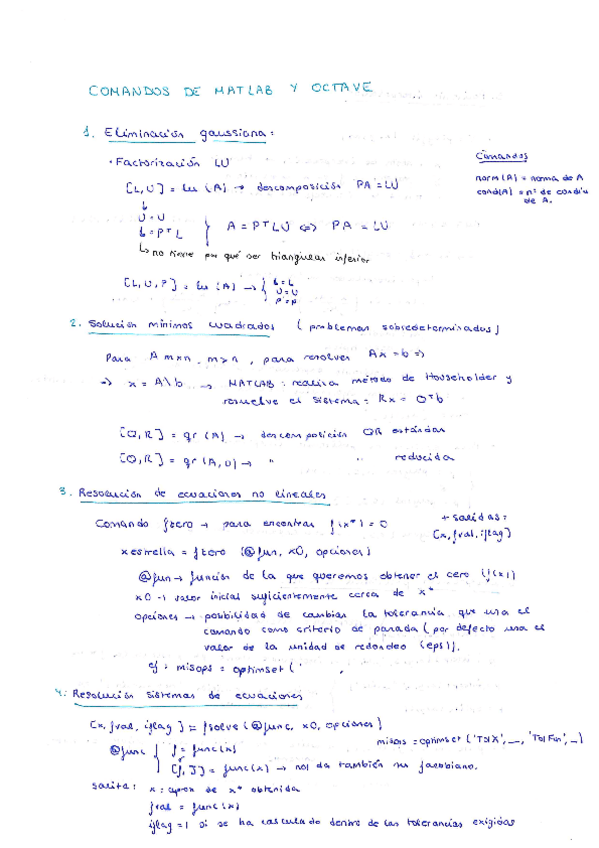 COMANDOS DE MATLAB Y OCTAVE
1. Eliminación gaussiana:
• Factorización LU
Comandos
norm(A) = norma de A
cond(A) = nº de condiu
de A.
[L,U] = lu (A) → descomposición PA = LU
U = U
L = PᵀL
} A = PᵀLU ⇔ PA = LU
↳ no tiene por qué ser triangular inferior
[L,U,P] = lu (A) → { L = L
U = U
P = P
2. Solución mínimos cuadrados ( problemas sobredeterminados)
Para A m×n, m>n, para resolver Ax = b ⇒
⇒ x = A\b → MATLAB: realiza método de Householder y
resuelve el sistema: Rx = Qᵀb
[Q,R] = qr (A) → descomposición QR estándar
[Q,R] = qr (A,0) → " " reducida
3. Resolución de ecuaciones no lineales
Comando fzero → para encontrar f(x*) = 0
+ salidas:
[x,fval,iflag]
xestrella = fzero (@fun, x0, opciones)
@fun → función de la que queremos obtener el cero (f(x))
x0 → valor inicial suficientemente cerca de x*
opciones → posibilidad de cambiar la tolerancia que usa el
comando como criterio de parada (por defecto usa el
valor de la unidad de redondeo (eps)).
ej: misops = optimset ('
4. Resolución sistemas de ecuaciones
[x, fval, iflag] = fsolve (@func, x0, opciones)
misops = optimset ('TolX', _, 'TolFun', _)
@func { f = func(x)
[f, J] = func(x) → nos da también su jacobiano.
salida: x: aprox de x* obtenida
fval = func(x)
iflag = 1 si se ha calculado dentro de las tolerancias exigidas